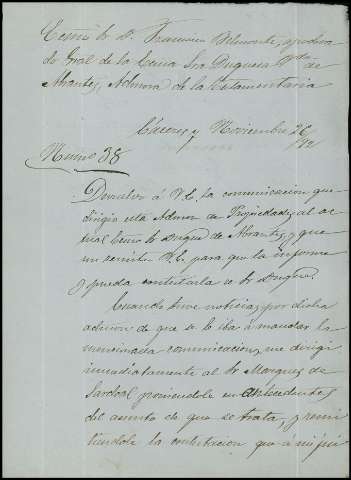 Excmo Sr. D. Francisco Belmonte, apodera-
do Gral de la Excma Sra Duquesa Vda de
Abrantes, Admora de la Testamentaria
Cáceres y Noviembre 26/72
Numo 38
Devuelvo á V.E. la comunicacion que
dirigio esta Admon de Propiedades, al ac-
tual Excmo Sr Duque de Abrantes, y que
me remite V.E. para que la informe
y pueda contestarla el Sr Duque.
Cuando tuve noticias, por dicha
admon de que se le iba á mandar la
mencionada comunicacion, me dirigi
inmediatamente al Sr Marques de
Sardoal poniendole en antecedentes
del asunto de que se trata, y remi-
tiendole la contestacion que á mi jui